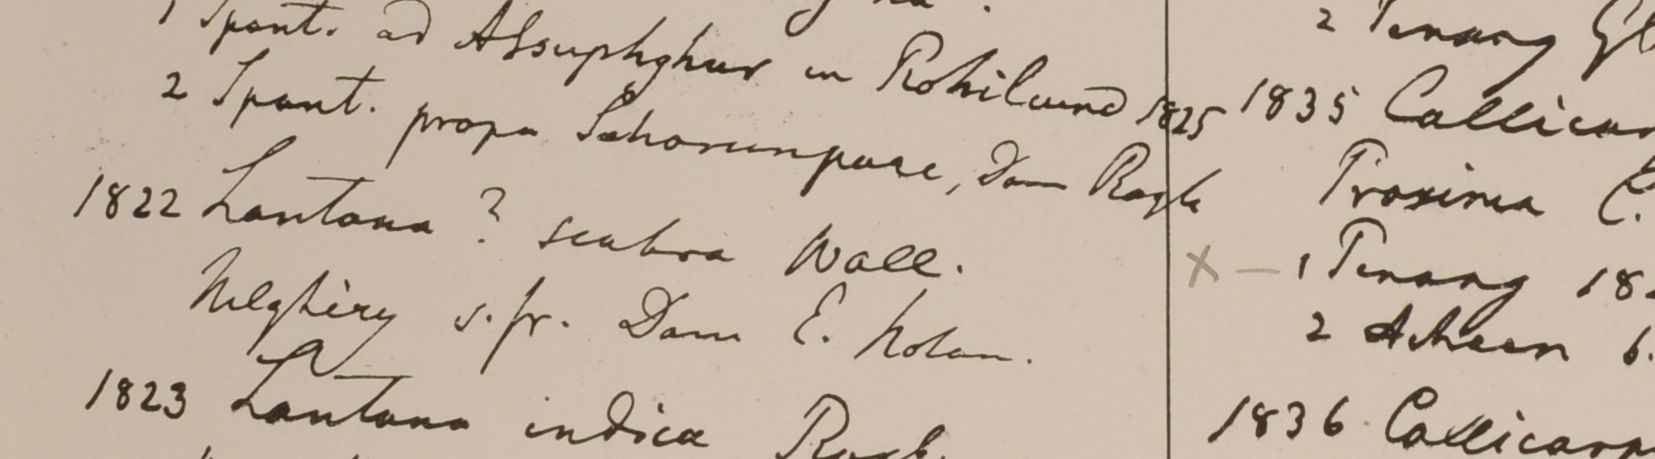 1 Spont. ad Afsuphghur in Rohilcund 1825
2 Spont. prope Sehorunpore, Dom Royle
1822 Lantana ? scabra Wall.
Nelghiry s. fr. Dom E. Noton.
1823 Lantana indica Roxb.
2 Penang
1835 Callicar
Proxima C.
x — 1 Penang 18
2 Acheen 6.
1836 Callicarp